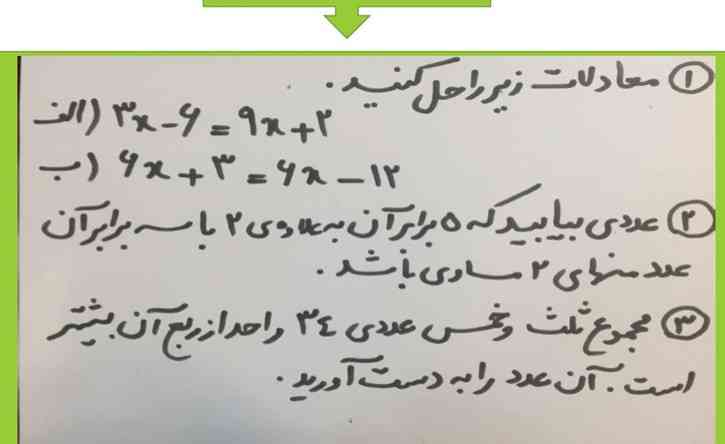 ① معادلات زیر را حل کنید.
الف) ۳x-۶ = ۹x+۲
ب) ۶x + ۳ = ۶x - ۱۲
② عددی بیابید که ۵ برابر آن به علاوی ۲ با سه برابر آن
عدد منهای ۲ مساوی باشد.
③ مجموع ثلث و خمس عددی ۳٤ واحد از ربع آن بیشتر
است. آن عدد را به دست آورید.